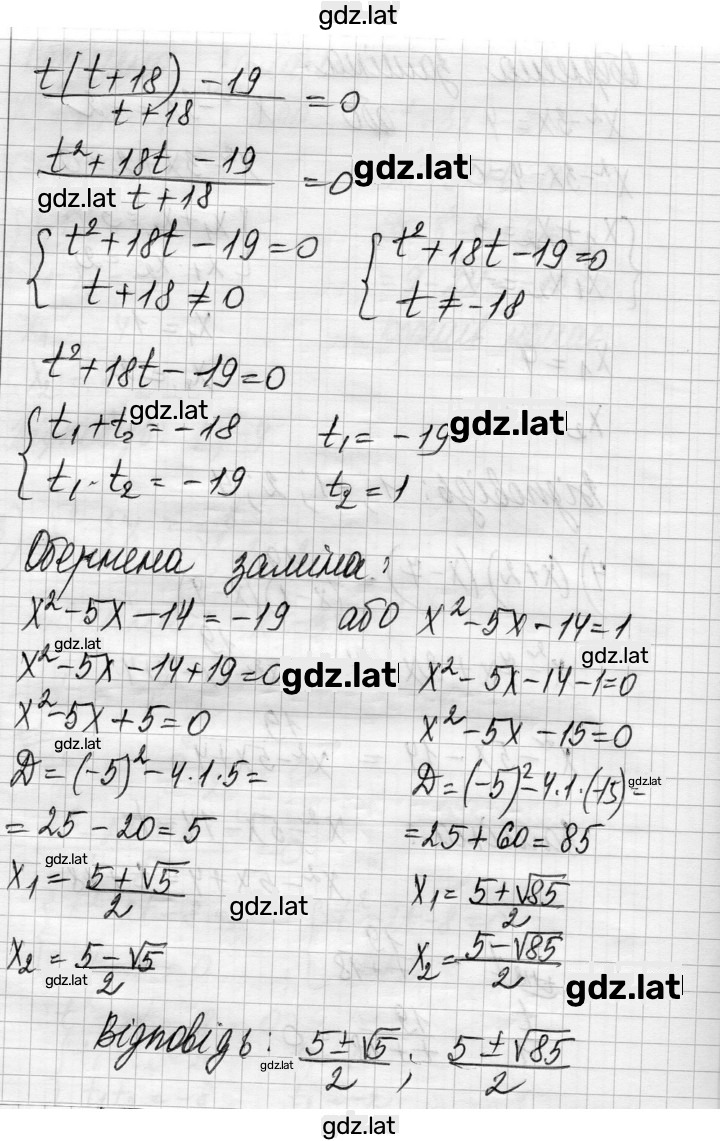 gdz.lat
t(t+18) -19 / t+18 = 0
t²+18t -19 / t+18 = 0 gdz.lat
gdz.lat
{ t²+18t-19=0 { t²+18t-19=0
t+18≠0 t≠-18
t²+18t-19=0
gdz.lat
{ t₁+t₂=-18 t₁=-19 gdz.lat
t₁·t₂=-19 t₂=1
Обернена заміна:
x²-5x-14=-19 або x²-5x-14=1
gdz.lat gdz.lat
x²-5x-14+19=0 gdz.lat x²-5x-14-1=0
x²-5x+5=0 x²-5x-15=0
gdz.lat
D=(-5)²-4·1·5= D=(-5)²-4·1·(-15)= gdz.lat
=25-20=5 =25+60=85
gdz.lat
x₁=5+√5 / 2 gdz.lat x₁=5+√85 / 2
x₂=5-√5 / 2 x₂=5-√85 / 2
gdz.lat gdz.lat
Відповідь: 5±√5 / 2 ; 5±√85 / 2
gdz.lat
gdz.lat